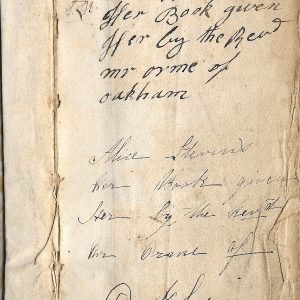 Her Book given
Her by the Revd
mr orme of
oakham
Alice Stevens
her Book given
Her by the Revd
mr Orme of